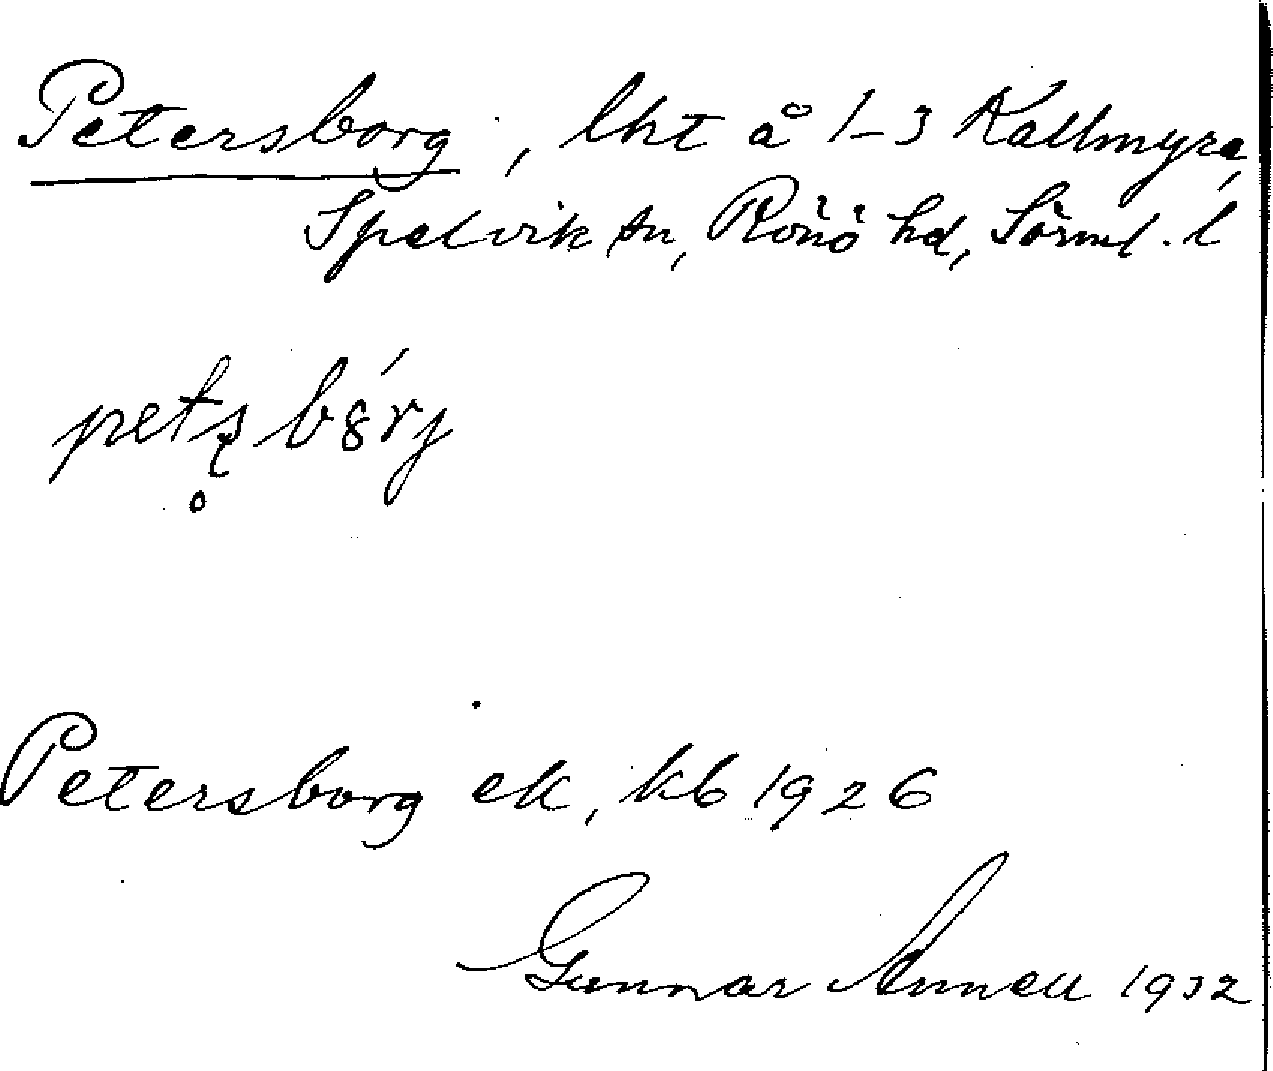 Petersborg, lht å 1-3 Källmyra,
Spelvik sn, Rönö hd, Sörml. l
Petersborg ek, kb 1926
Gunnar Annell 1932